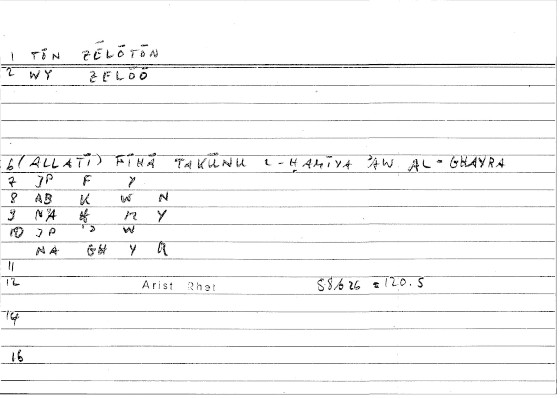 1 TŌN ZĒLŌTŌN
2 WY ZELOŌ
6 (ALLATĪ) FĪHĀ TAKŪNU L-ḤAMĪYA ʾAW AL-GHAYRA
7 JP F Y
8 AB K W N
9 NA Ḥ M Y
10 JP ʾ W
NA GH Y R
11
12 Arist Rhet 58b26 = 120.5
14
16